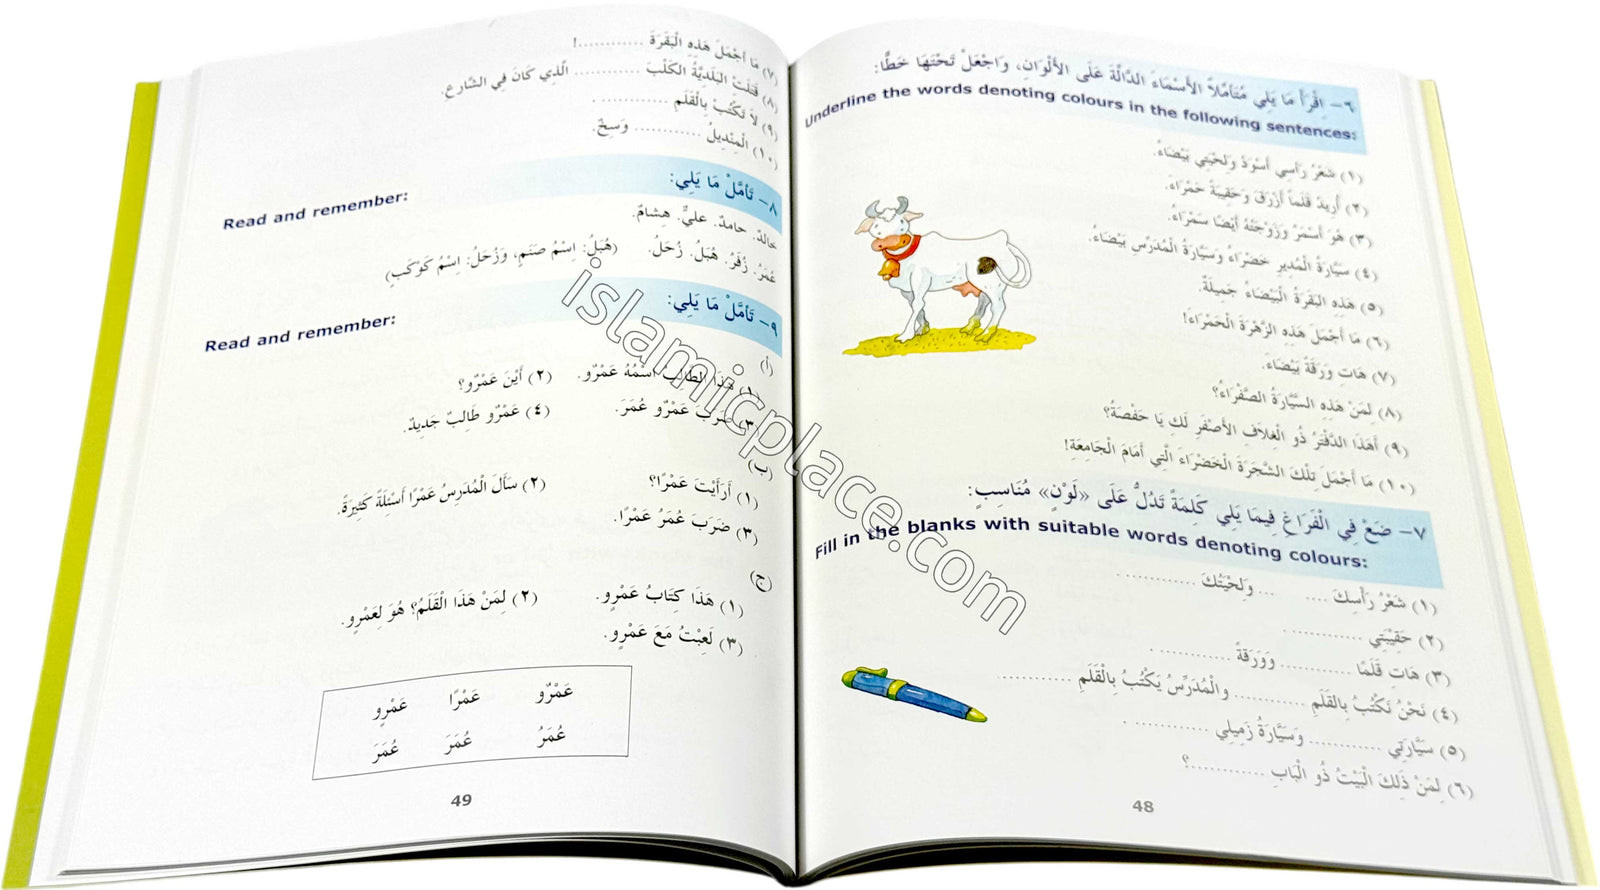 ٦- اِقْرَأْ مَا يَلِي مُتَأَمِّلاً الأَسْمَاءَ الدَّالَّةَ عَلَى الأَلْوَانِ، وَاجْعَلْ تَحْتَهَا خَطًّا:
Underline the words denoting colours in the following sentences:
(١) شَعْرُ رَأْسِي أَسْوَدُ وَلِحْيَتِي بَيْضَاءُ.
(٢) أُرِيدُ قَلَماً أَزْرَقَ وَحَقِيبَةً حَمْرَاءَ.
(٣) هُوَ أَسْمَرُ وَزَوْجَتُهُ أَيْضًا سَمْرَاءُ.
(٤) سَيَّارَةُ الْمُدِيرِ خَضْرَاءُ وَسَيَّارَةُ الْمُدَرِّسِ بَيْضَاءُ.
(٥) هَذِهِ الْبَقَرَةُ الْبَيْضَاءُ جَمِيلَةٌ.
(٦) مَا أَجْمَلَ هَذِهِ الزَّهْرَةَ الْحَمْرَاءَ!
(٧) هَاتِ وَرَقَةً بَيْضَاءَ.
(٨) لِمَنْ هَذِهِ السَّيَّارَةُ الصَّفْرَاءُ؟
(٩) أَهَذَا الدَّفْتَرُ ذُو الْغِلَافِ الأَصْفَرِ لَكِ يَا حَفْصَةُ؟
(١٠) مَا أَجْمَلَ تِلْكَ الشَّجَرَةَ الْخَضْرَاءَ الَّتِي أَمَامَ الْجَامِعَةِ!
٧- ضَعْ فِي الْفَرَاغِ فِيمَا يَلِي كَلِمَةً تَدُلُّ عَلَى «لَوْنٍ» مُنَاسِبٍ:
Fill in the blanks with suitable words denoting colours:
(١) شَعْرُ رَأْسِكَ ............ وَلِحْيَتُكَ ............ .
(٢) حَقِيبَتِي ............ .
(٣) هَاتِ قَلَمًا ............ وَوَرَقَةً ............ .
(٤) نَحْنُ نَكْتُبُ بِالْقَلَمِ ............ والْمُدَرِّسُ يَكْتُبُ بِالْقَلَمِ ............
(٥) سَيَّارَتِي ............ وَسَيَّارَةُ زَمِيلِي ............ .
(٦) لِمَنْ ذَلِكَ الْبَيْتُ ذُو الْبَابِ ............؟
48
(٧) مَا أَجْمَلَ هَذِهِ الْبَقَرَةَ ............!
(٨) قَتَلَتْ الْبَلَدِيَّةُ الْكَلْبَ ............ الَّذِي كَانَ فِي الشَّارِعِ.
(٩) لاَ تَكْتُبْ بِالْقَلَمِ ............ .
(١٠) الْمِنْدِيلُ ............ وَسِخٌ.
٨- تَأَمَّلْ مَا يَلِي:
Read and remember:
خالدٌ. حامدٌ. عليٌّ. هِشامٌ.
عُمَرُ. زُفَرُ. هُبَلُ. زُحَلُ. (هُبَلُ: اِسْمُ صَنَمٍ، وَزُحَلُ: اِسْمُ كَوْكَبٍ)
٩- تَأَمَّلْ مَا يَلِي:
Read and remember:
(أ)
(١) هَذَا الطَّالِبُ اسْمُهُ عَمْرٌو. (٢) أَيْنَ عَمْرٌو؟
(٣) ضَرَبَ عَمْرٌو عُمَرَ. (٤) عَمْرٌو طَالِبٌ جَدِيدٌ.
(ب)
(١) أَرَأَيْتَ عَمْرًا؟ (٢) سَأَلَ الْمُدَرِسُ عَمْرًا أَسْئِلَةً كَثِيرَةً.
(٣) ضَرَبَ عُمَرُ عَمْرًا.
(ج)
(١) هَذَا كِتَابُ عَمْرٍو. (٢) لِمَنْ هَذَا الْقَلَمُ؟ هُوَ لِعَمْرٍو.
(٣) لَعِبْتُ مَعَ عَمْرٍو.
عَمْرٌو عَمْرًا عَمْرٍو
عُمَرُ عُمَرَ عُمَرَ
49
islamicplace.com